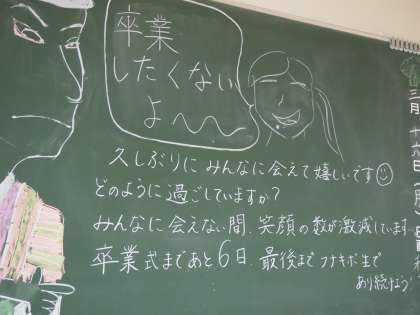 卒業
したくない
よ〜〜
久しぶりにみんなに会えて嬉しいです☺
どのように過ごしていますか?
みんなに会えない間、笑顔の数が激減しています…
卒業式まであと6日、最後までフナキボ生で
あり続けよう!
三月十六日